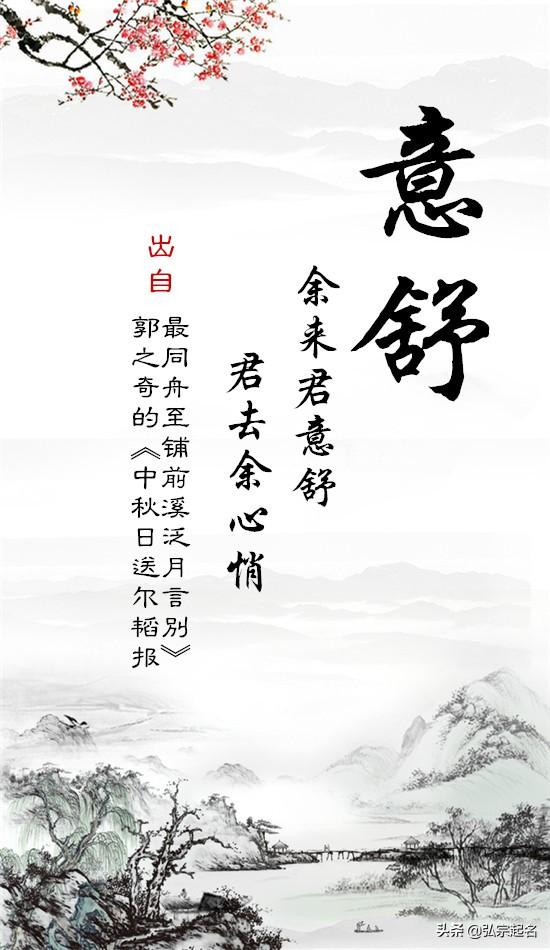 意舒
余来君意舒
君去余心悄
出自
郭之奇的《中秋日送尔韬报
最同舟至铺前溪泛月言别》
头条 @弘宗起名